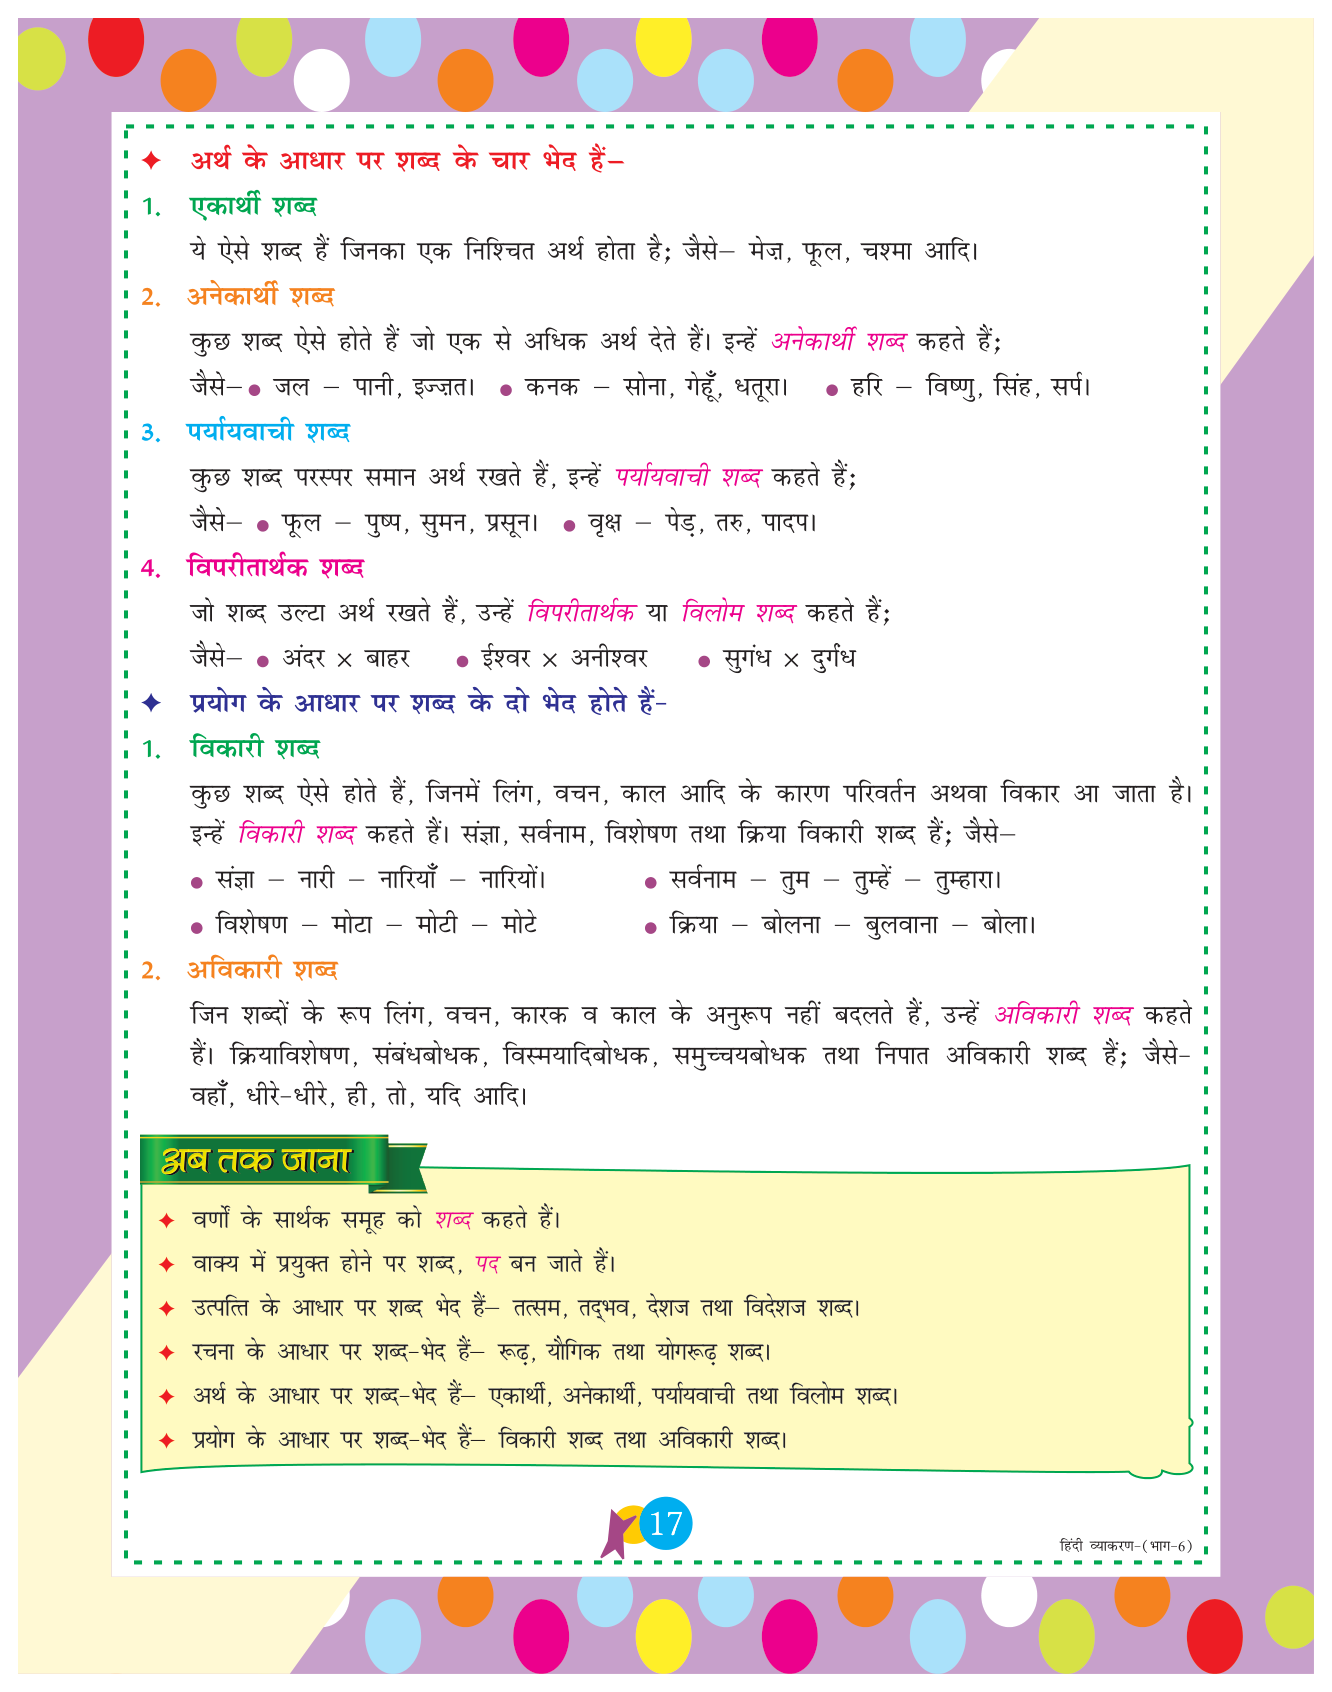 ✦ अर्थ के आधार पर शब्द के चार भेद हैं–
1. एकार्थी शब्द
ये ऐसे शब्द हैं जिनका एक निश्चित अर्थ होता है; जैसे– मेज़, फूल, चश्मा आदि।
2. अनेकार्थी शब्द
कुछ शब्द ऐसे होते हैं जो एक से अधिक अर्थ देते हैं। इन्हें अनेकार्थी शब्द कहते हैं;
जैसे– ● जल – पानी, इज्ज़त। ● कनक – सोना, गेहूँ, धतूरा। ● हरि – विष्णु, सिंह, सर्प।
3. पर्यायवाची शब्द
कुछ शब्द परस्पर समान अर्थ रखते हैं, इन्हें पर्यायवाची शब्द कहते हैं;
जैसे– ● फूल – पुष्प, सुमन, प्रसून। ● वृक्ष – पेड़, तरु, पादप।
4. विपरीतार्थक शब्द
जो शब्द उल्टा अर्थ रखते हैं, उन्हें विपरीतार्थक या विलोम शब्द कहते हैं;
जैसे– ● अंदर × बाहर ● ईश्वर × अनीश्वर ● सुगंध × दुर्गंध
✦ प्रयोग के आधार पर शब्द के दो भेद होते हैं-
1. विकारी शब्द
कुछ शब्द ऐसे होते हैं, जिनमें लिंग, वचन, काल आदि के कारण परिवर्तन अथवा विकार आ जाता है।
इन्हें विकारी शब्द कहते हैं। संज्ञा, सर्वनाम, विशेषण तथा क्रिया विकारी शब्द हैं; जैसे–
● संज्ञा – नारी – नारियाँ – नारियों। ● सर्वनाम – तुम – तुम्हें – तुम्हारा।
● विशेषण – मोटा – मोटी – मोटे ● क्रिया – बोलना – बुलवाना – बोला।
2. अविकारी शब्द
जिन शब्दों के रूप लिंग, वचन, कारक व काल के अनुरूप नहीं बदलते हैं, उन्हें अविकारी शब्द कहते
हैं। क्रियाविशेषण, संबंधबोधक, विस्मयादिबोधक, समुच्चयबोधक तथा निपात अविकारी शब्द हैं; जैसे-
वहाँ, धीरे-धीरे, ही, तो, यदि आदि।
अब तक जाना
✦ वर्णों के सार्थक समूह को शब्द कहते हैं।
✦ वाक्य में प्रयुक्त होने पर शब्द, पद बन जाते हैं।
✦ उत्पत्ति के आधार पर शब्द भेद हैं– तत्सम, तद्भव, देशज तथा विदेशज शब्द।
✦ रचना के आधार पर शब्द-भेद हैं– रूढ़, यौगिक तथा योगरूढ़ शब्द।
✦ अर्थ के आधार पर शब्द-भेद हैं– एकार्थी, अनेकार्थी, पर्यायवाची तथा विलोम शब्द।
✦ प्रयोग के आधार पर शब्द-भेद हैं– विकारी शब्द तथा अविकारी शब्द।
17
हिंदी व्याकरण-(भाग-6)